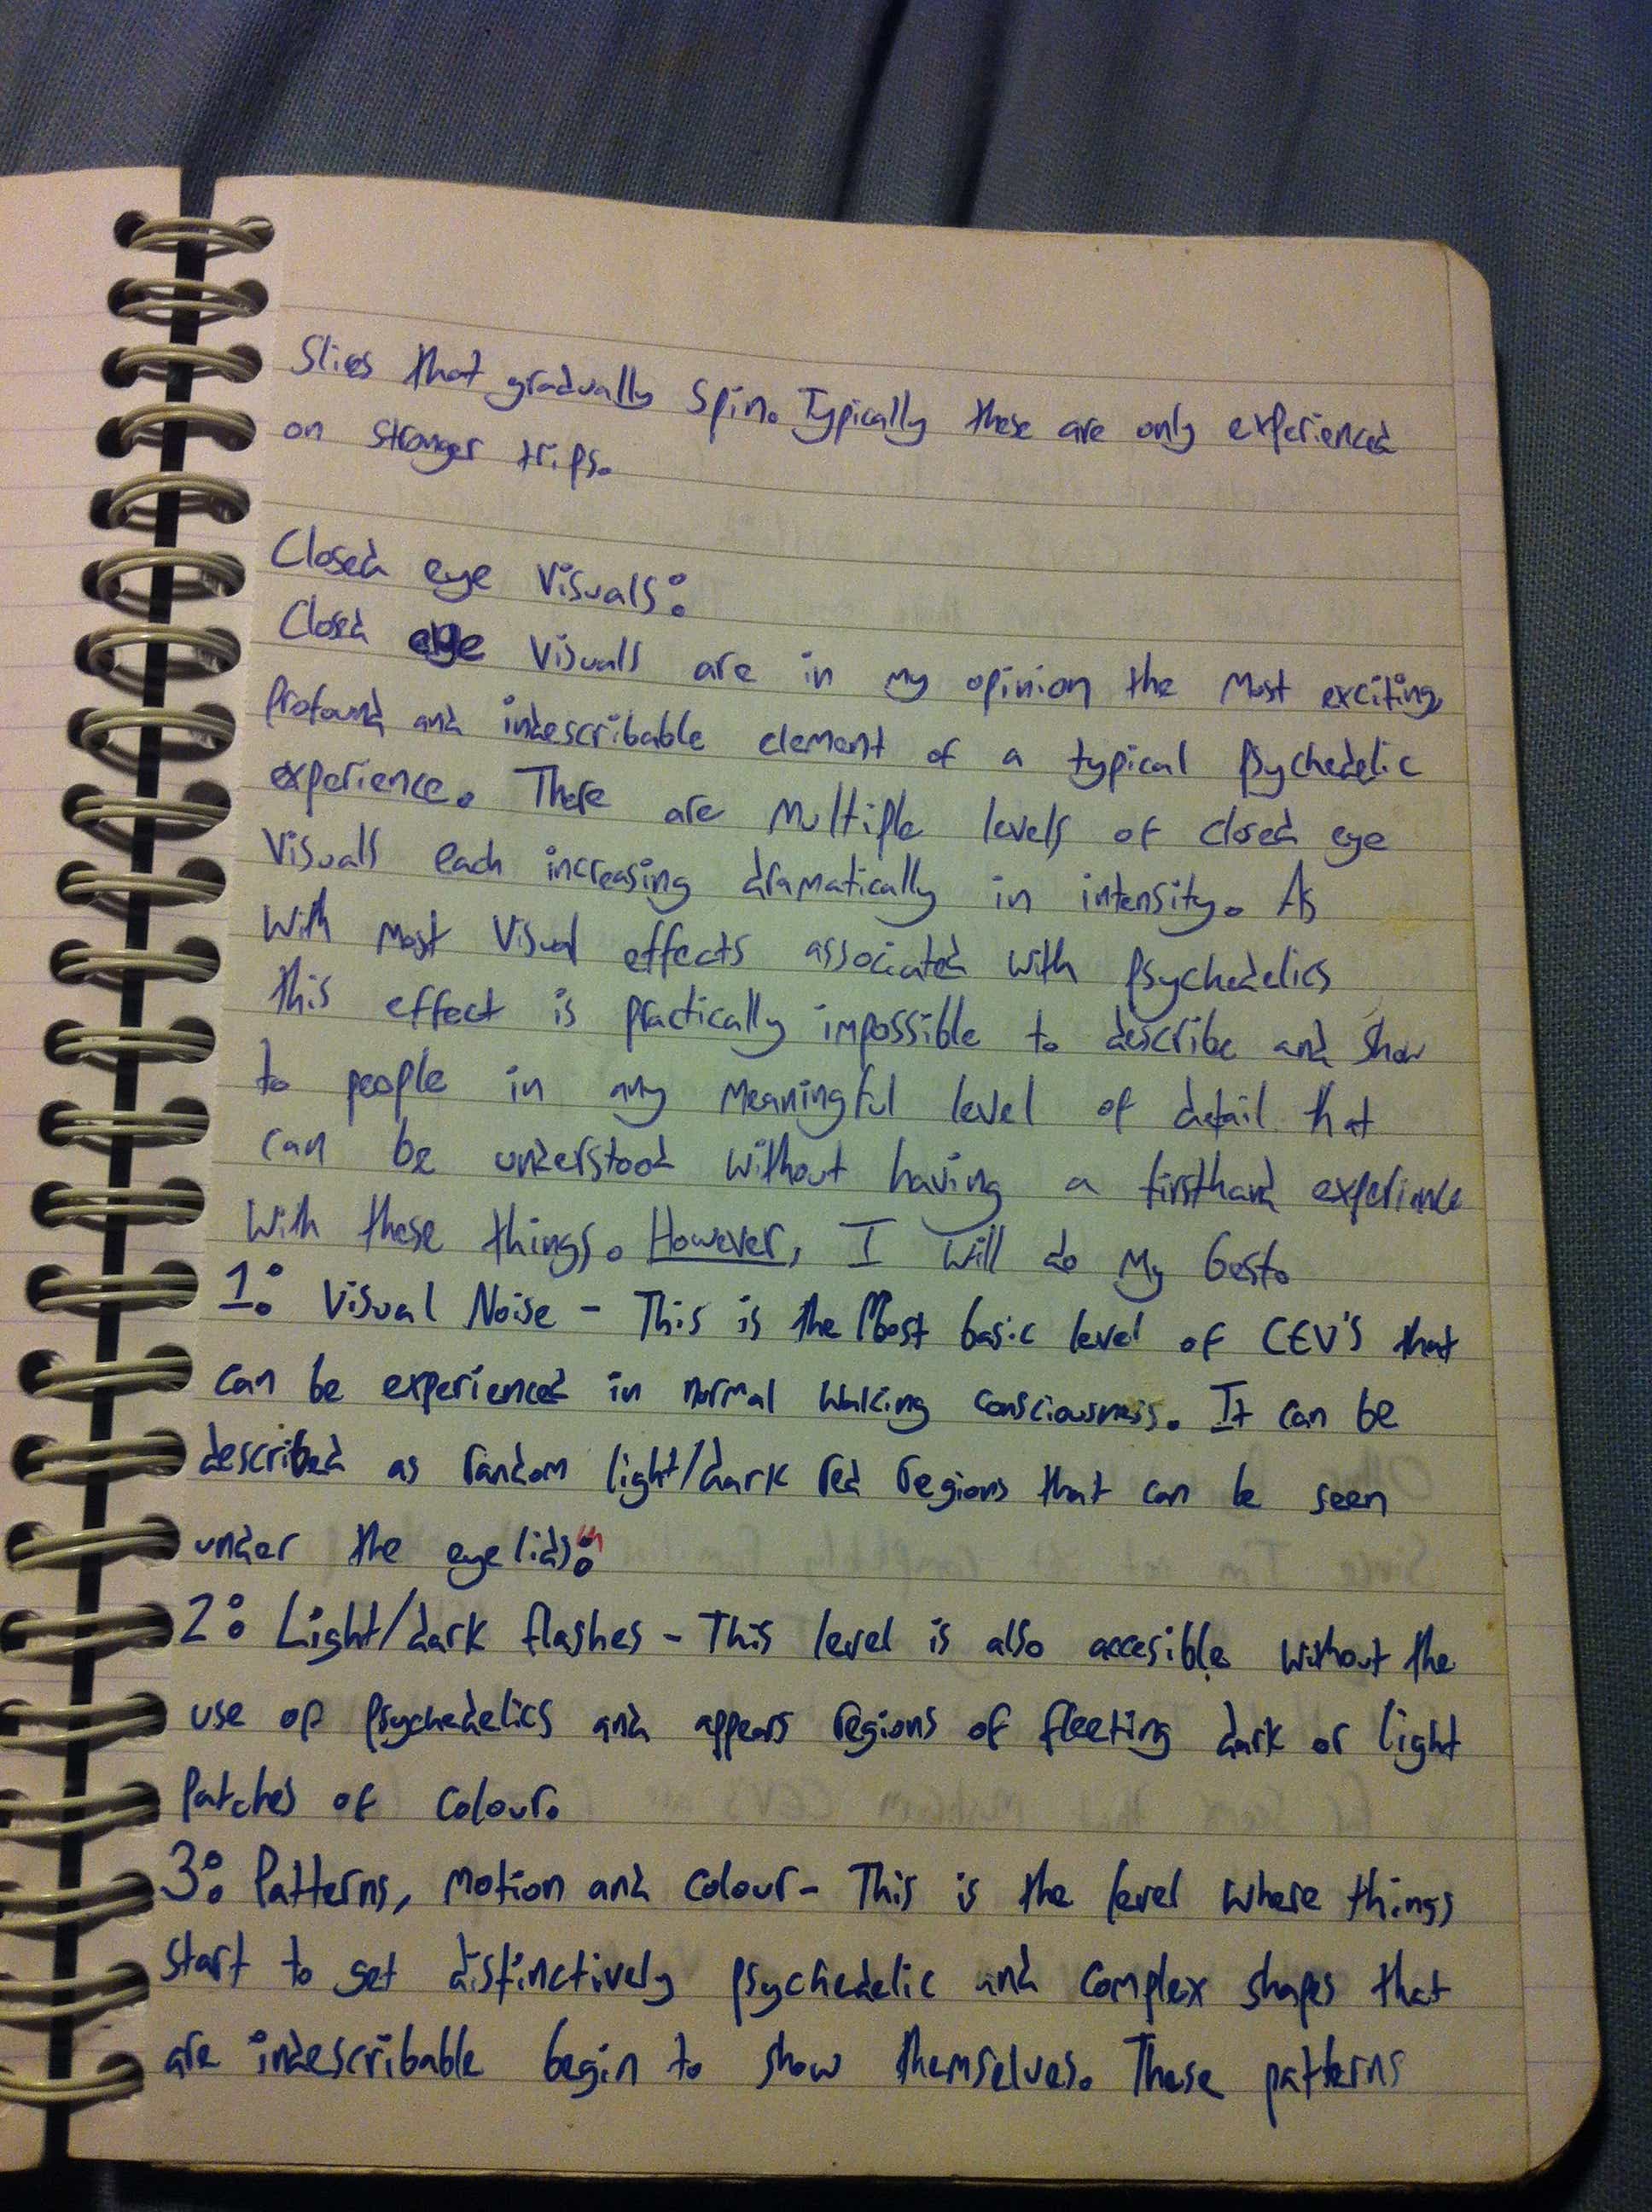 Slices that gradually spin. Typically these are only experienced
on stronger trips.
Closed eye visuals:
Closed eye visuals are in my opinion the most exciting,
profound and indescribable element of a typical psychedelic
experience. There are multiple levels of closed eye
visuals each increasing dramatically in intensity. As
with most visual effects associated with psychedelics
this effect is practically impossible to describe and show
to people in any meaningful level of detail that
can be understood without having a firsthand experience
with these things. However, I will do my best.
1: Visual Noise - This is the Most basic level of CEV's that
can be experienced in normal waking consciousness. It can be
described as random light/dark red regions that can be seen
under the eyelids.
2: Light/dark flashes - This level is also accesible without the
use of psychedelics and appears regions of fleeting dark or light
patches of colour.
3: Patterns, motion and colour - This is the level where things
start to get distinctively psychedelic and complex shapes that
are indescribable begin to show themselves. These patterns